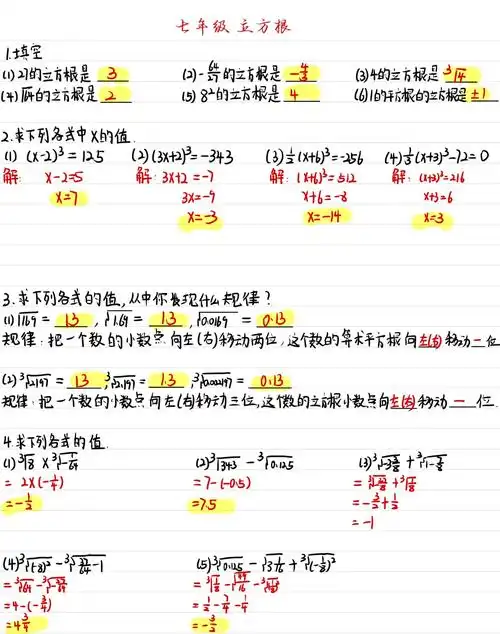 七年级 立方根
1.填空
(1) 27的立方根是 3 (2) -64/27的立方根是 -4/3 (3) 4的立方根是 ³√4
(4) √64的立方根是 2 (5) 8²的立方根是 4 (6) 1的平方根的立方根是 ±1
2.求下列各式中X的值.
(1) (x-2)³=125 (2) (3x+2)³=-343 (3) ½(x+6)³=-256 (4) (x+3)³-72=0
解: x-2=5 解: 3x+2=-7 解: (x+6)³=512 解: (x+3)³=216
x=7 3x=-9 x+6=-8 x+3=6
x=-3 x=-14 x=3
3.求下列各式的值,从中你发现什么规律?
(1) √169 = 13, √1.69 = 1.3, √0.0169 = 0.13
规律: 把一个数的小数点向左(右)移动两位,这个数的算术平方根向左(右)移动一位
(2) ³√2197 = 13, ³√2.197 = 1.3, ³√0.002197 = 0.13
规律: 把一个数的小数点向左(右)移动三位,这个数的立方根小数点向左(右)移动 一 位.
4.求下列各式的值.
(1) ³√8 × ³√-1/64 (2) ³√343 - ³√0.125 (3) ³√-3 3/8 + ³√1-7/8
= 2×(-1/4) = 7-(-0.5) = ³√-27/8 + ³√1/8
= -1/2 = 7.5 = -3/2+1/2
= -1
(4) ³√(-8)² - ³√37/64-1 (5) ³√0.125 - √3 1/16 + ³√(-1/8)²
= ³√64 - ³√-27/64 = ³√1/8 - √49/16
= 4-(-3/4) = 1/2-7/4-1/4
= 4 3/4 = -3/2